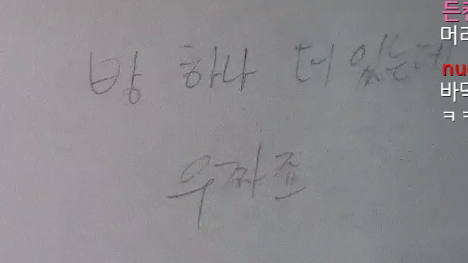 방 하나 더 있는데
우짜죠
머리
바닥
ㅋㅋ